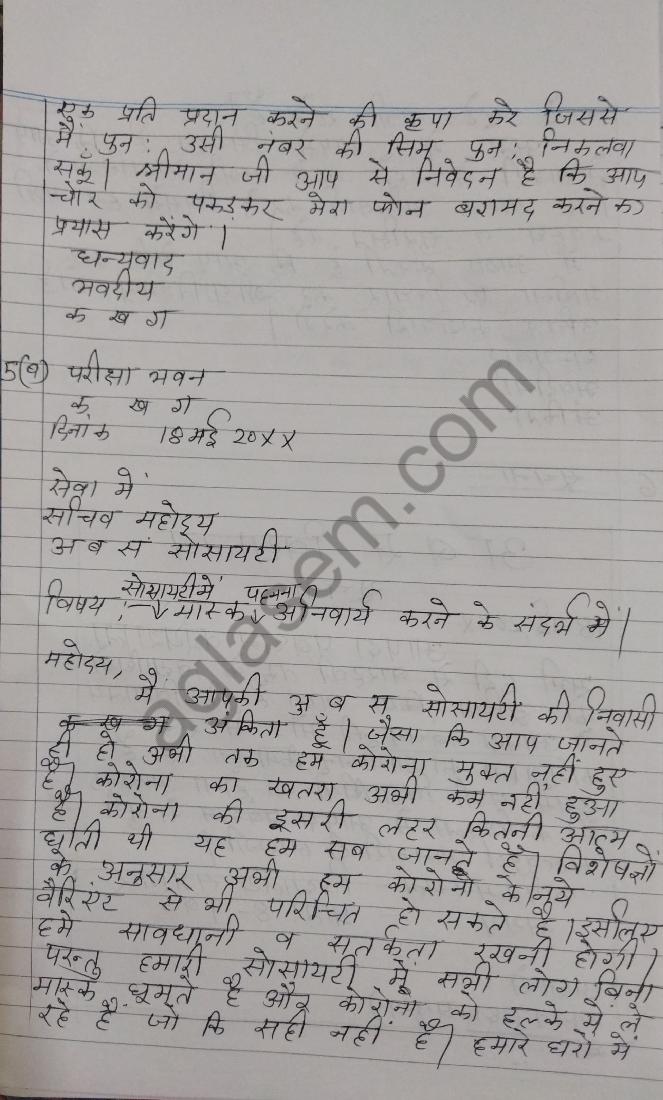 एक प्रति प्रदान करने की कृपा करे जिससे
मैं पुन: उसी नंबर की सिम पुन: निकलवा
सकूँ। श्रीमान जी आप से निवेदन है कि आप
चोर को पकड़कर मेरा फोन बरामद करने का
प्रयास करेंगे।
धन्यवाद
भवदीय
क ख ग
5(ब) परीक्षा भवन
क ख ग
दिनांक 18 मई 20XX
सेवा में
सचिव महोदय
अ ब स सोसायटी
सोसायटी में पहनना
विषय :- मास्क अनिवार्य करने के संदर्भ में।
महोदय,
मैं आपकी अ ब स सोसायटी की निवासी
क ख ग अंकिता हूँ। जैसा कि आप जानते
ही हो अभी तक हम कोरोना मुक्त नहीं हुए
है। कोरोना का खतरा अभी कम नहीं हुआ
है। कोरोना की दूसरी लहर कितनी आत्म
घाती थी यह हम सब जानते है। विशेषज्ञों
के अनुसार अभी हम कोरोना के नये
वैरिएंट से भी परिचित हो सकते है। इसलिए
हमे सावधानी व सतर्कता रखनी होगी।
परन्तु हमारी सोसायटी में सभी लोग बिना
मास्क घूमते है और कोरोना को हल्के में ले
रहे हैं जो कि सही नहीं है। हमारे घरों में
aglasem.com